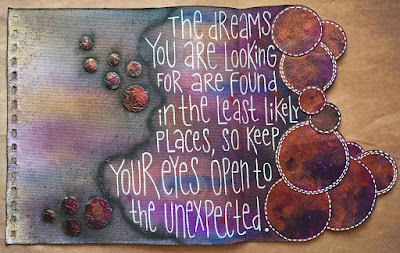 The dreams
You are looking
for are found
in the least likely
places, so keep
your eyes open to
the unexpected.